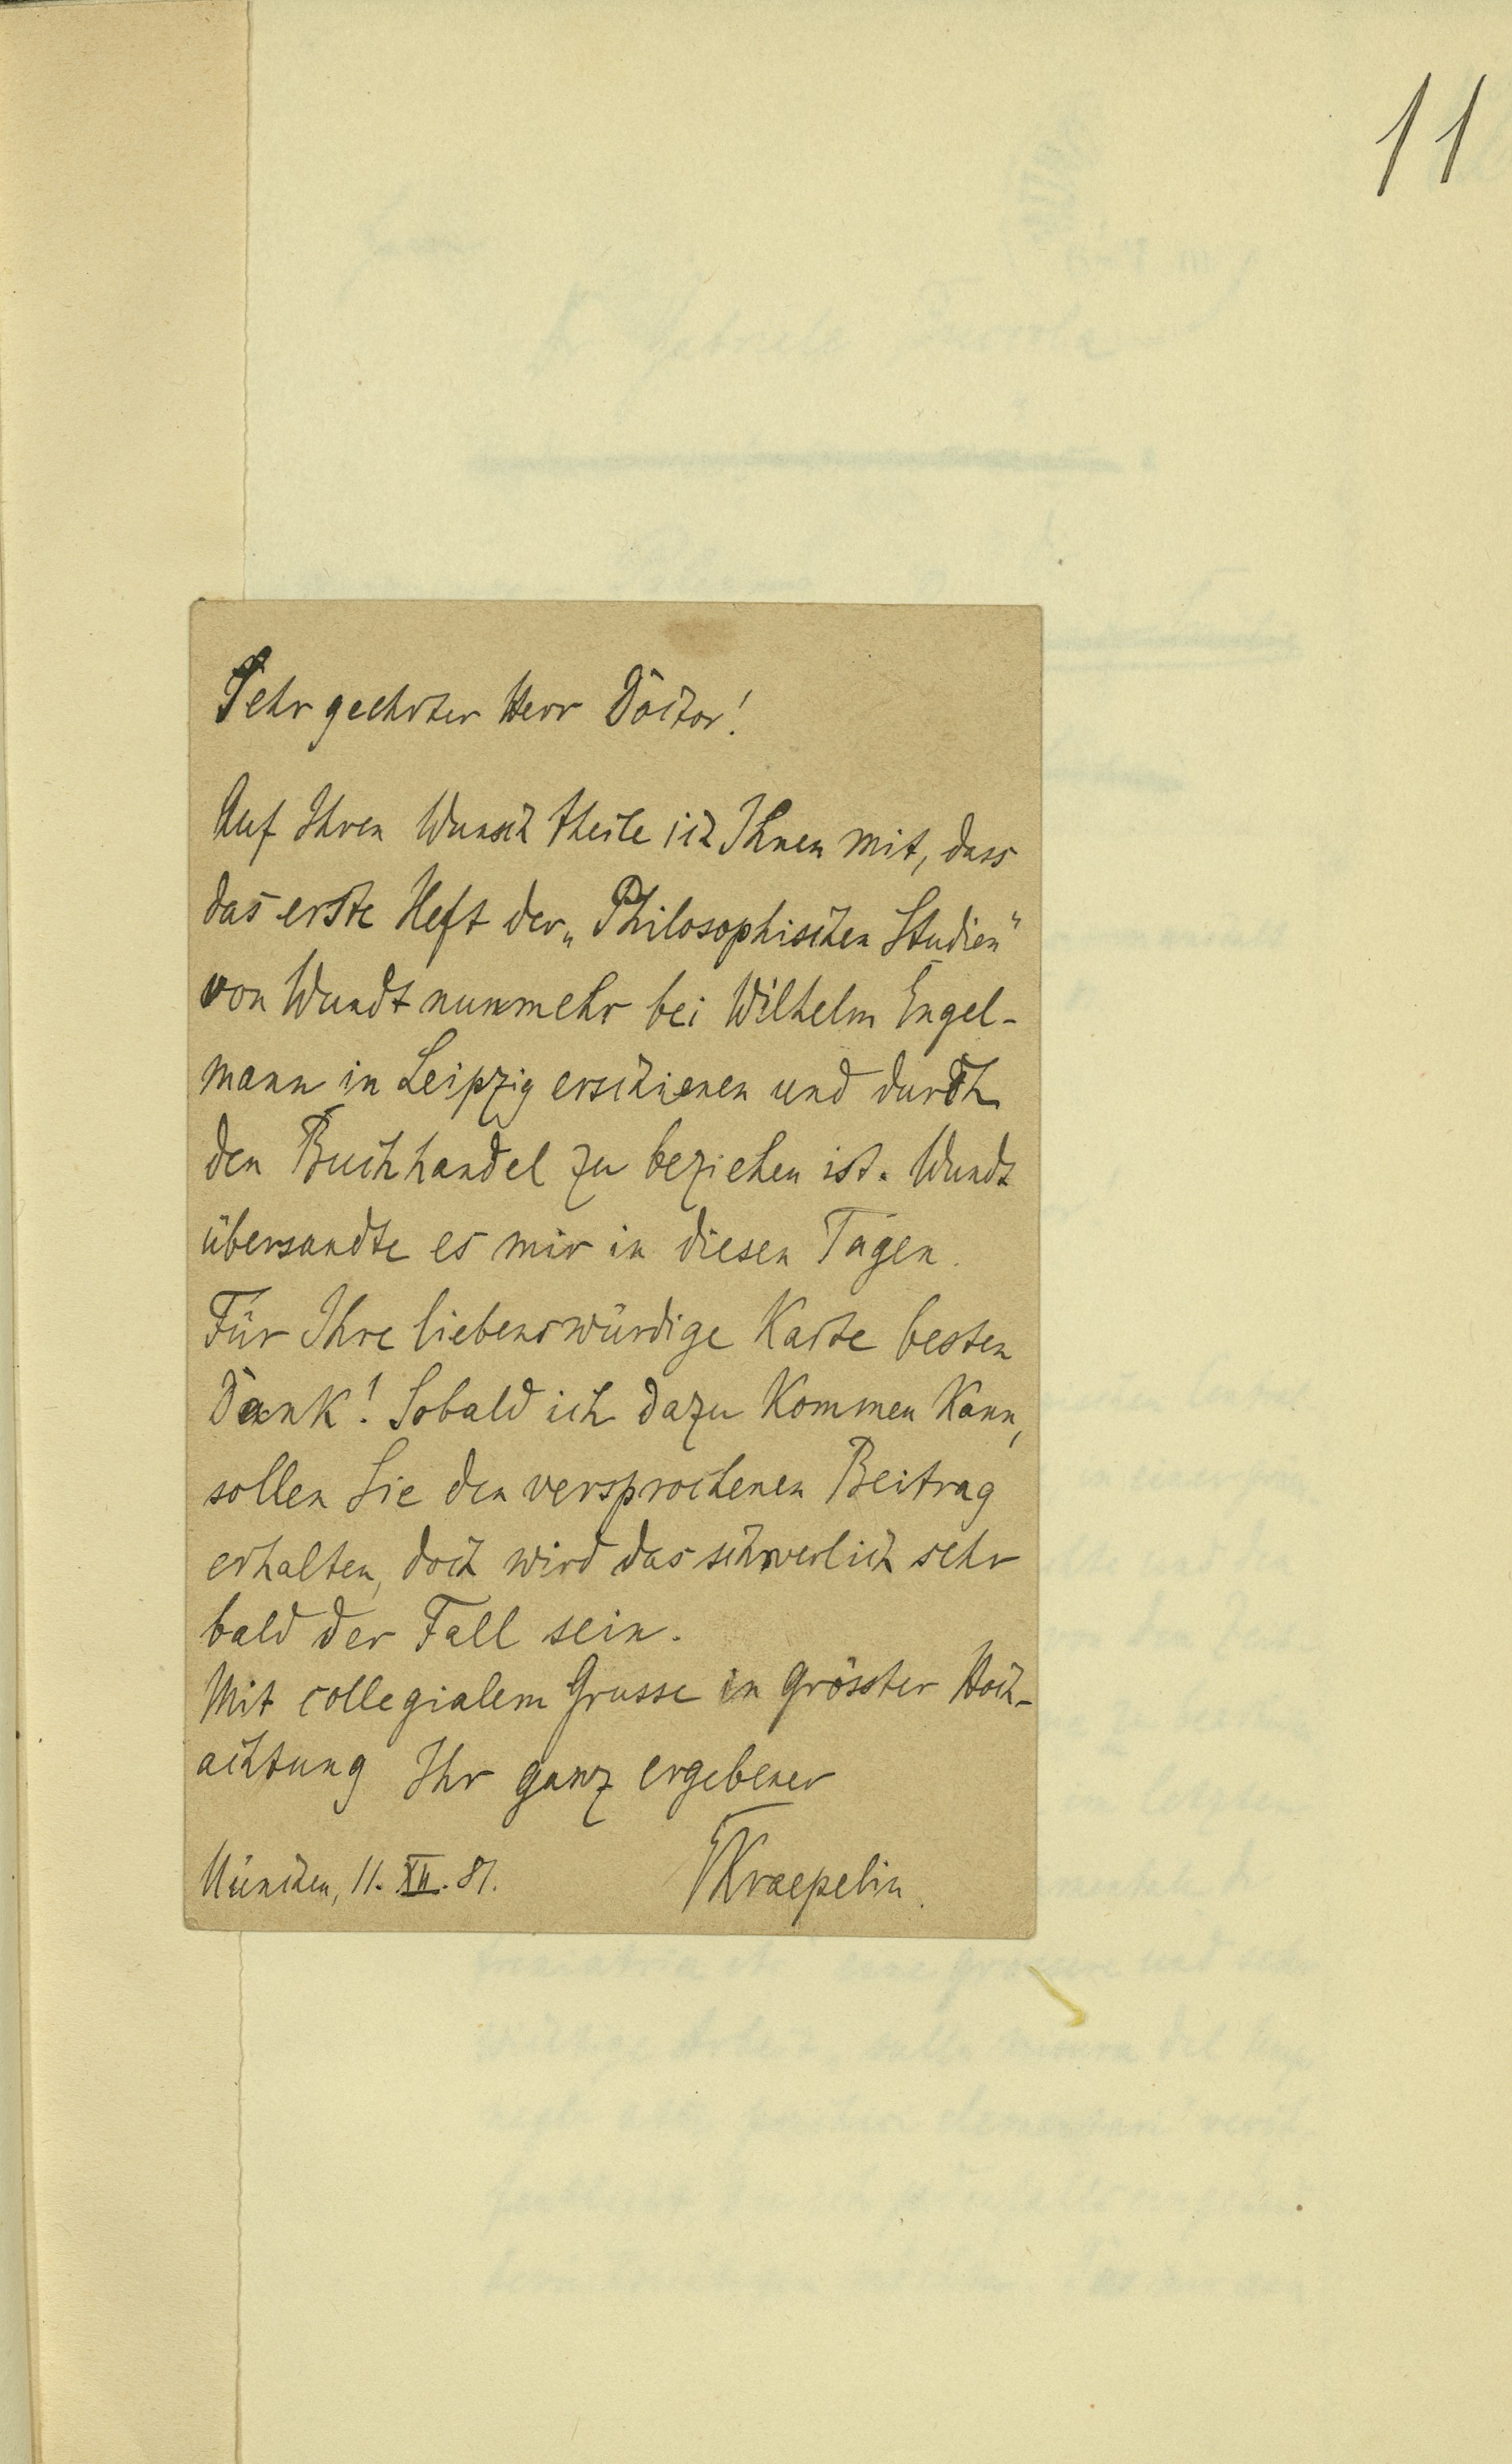 11
Sehr geehrter Herr Doctor!
Auf Ihren Wunsch theile ich Ihnen mit, dass
das erste Heft der „Philosophischen Studien“
von Wundt nunmehr bei Wilhelm Engel-
mann in Leipzig erschienen und durch
den Buchhandel zu beziehen ist. Wundt
übersandte es mir in diesen Tagen.
Für Ihre liebenswürdige Karte besten
Dank! Sobald ich dazu kommen kann,
sollen Sie den versprochenen Beitrag
erhalten, doch wird das schwerlich sehr
bald der Fall sein.
Mit collegialem Grusse in grösster Hoch-
achtung Ihr ganz ergebener
München, 11. XII. 81. EKraepelin.